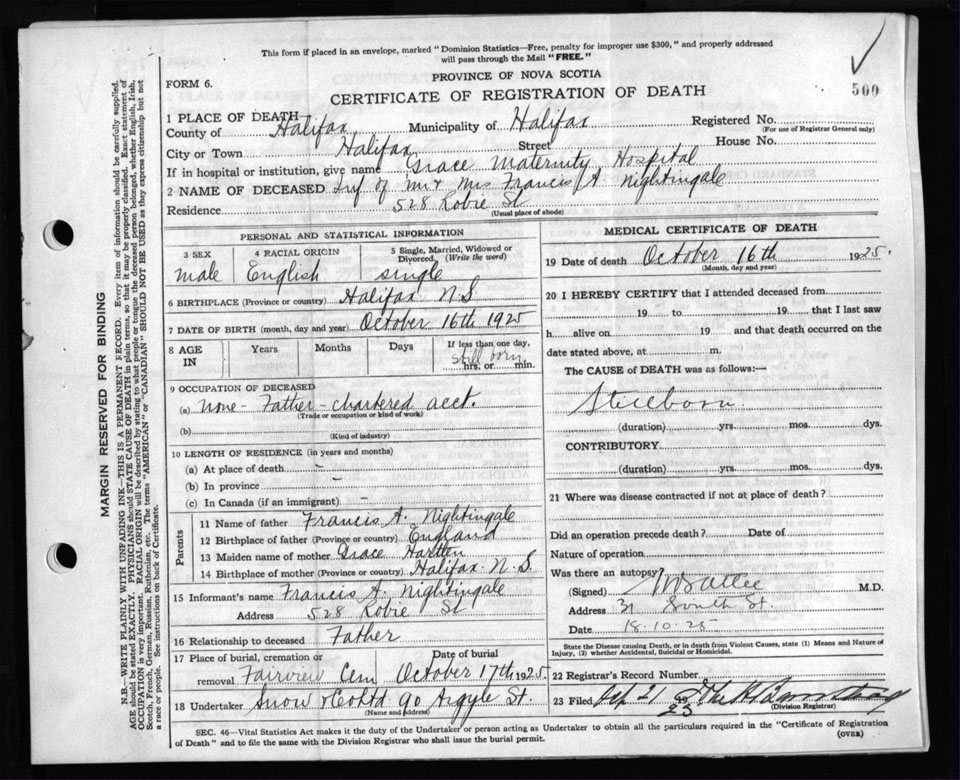 This form if placed in an envelope, marked "Dominion Statistics—Free, penalty for improper use $300," and properly addressed
will pass through the Mail "FREE."
FORM 6.
PROVINCE OF NOVA SCOTIA
500
CERTIFICATE OF REGISTRATION OF DEATH
1 PLACE OF DEATH
County of Halifax Municipality of Halifax Registered No.
(For use of Registrar General only)
City or Town Halifax Street House No.
If in hospital or institution, give name Grace Maternity Hospital
2 NAME OF DECEASED Inf of Mr & Mrs Francis A Nightingale
Residence 528 Robie St
(Usual place of abode)
PERSONAL AND STATISTICAL INFORMATION
3 SEX 4 RACIAL ORIGIN 5 Single, Married, Widowed or Divorced. (Write the word)
male English single
6 BIRTHPLACE (Province or country) Halifax N.S
7 DATE OF BIRTH (month, day and year) October 16th 1925
8 AGE IN Years Months Days If less than one day,
still born
hrs. or min.
9 OCCUPATION OF DECEASED
(a) none - Father - chartered acct.
(Trade or occupation or kind of work)
(b)
(Kind of industry)
10 LENGTH OF RESIDENCE (in years and months)
(a) At place of death –
(b) In province –
(c) In Canada (if an immigrant) –
Parents
11 Name of father Francis A. Nightingale
12 Birthplace of father (Province or country) England
13 Maiden name of mother Grace Hartlen
14 Birthplace of mother (Province or country) Halifax. N.S.
15 Informant's name Francis A. Nightingale
Address 528 Robie St
16 Relationship to deceased Father
17 Place of burial, cremation or removal Date of burial
Fairview Cem October 17th 1925.
18 Undertaker Snow & Co Ltd 90 Argyle St.
(Name and address)
MEDICAL CERTIFICATE OF DEATH
19 Date of death October 16th 1925.
(Month, day and year)
20 I HEREBY CERTIFY that I attended deceased from
19 to 19 that I last saw
h alive on 19 and that death occurred on the
date stated above, at m.
The CAUSE of DEATH was as follows:—
Stillborn
(duration) yrs. mos. dys.
CONTRIBUTORY
(duration) yrs. mos. dys.
21 Where was disease contracted if not at place of death?
Did an operation precede death? Date of
Nature of operation
Was there an autopsy
(Signed) M.D.
Address 31 South St.
Date 18.10.25
State the Disease causing Death, or in death from Violent Causes, state (1) Means and Nature of
Injury, (2) whether Accidental, Suicidal or Homicidal.
22 Registrar's Record Number
23 Filed 21 19 25
(Division Registrar)
SEC. 46—Vital Statistics Act makes it the duty of the Undertaker or person acting as Undertaker to obtain all the particulars required in the "Certificate of Registration
of Death" and to file the same with the Division Registrar who shall issue the burial permit.
(OVER)
MARGIN RESERVED FOR BINDING
N.B.—WRITE PLAINLY WITH UNFADING INK—THIS IS A PERMANENT RECORD. Every item of information should be carefully supplied.
AGE should be stated EXACTLY. PHYSICIANS should STATE CAUSE OF DEATH in plain terms, so that it may be properly classified. Exact statement of
OCCUPATION is very important. RACIAL ORIGIN will be described by stating to what people or tongue the deceased person belonged, whether English, Irish,
Scotch, French, German, Russian, Ruthenian, etc. The terms "AMERICAN" or "CANADIAN" SHOULD NOT BE USED as they express citizenship but not
a race or people. See instructions on back of Certificate.